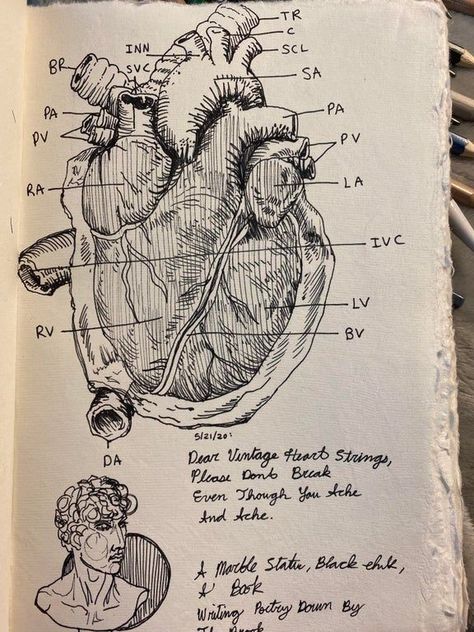 TR
C
INN
SCL
BR
SVC
SA
PA
PA
PV
PV
RA
LA
IVC
LV
RV
BV
DA
5/21/20:
Dear Vintage Heart Strings,
Please Dont Break
Even Though You Ache
And Ache.
A Marble Statu, Black
A Book
Writing Poetry Down By
The Brook